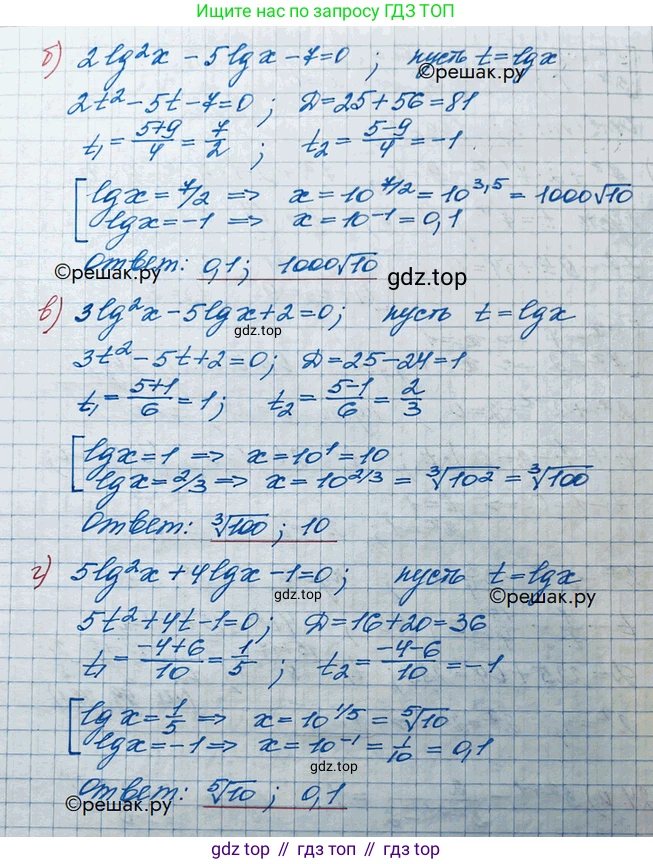 Ищите ГДЗ по запросу ГДЗ ТОП
б) 2lg²x - 5lgx - 7=0 ; пусть t=lgx
©решак.ру
2t² - 5t - 7=0 ; D=25+56=81
t₁ = (5+9)/4 = 7/2 ; t₂ = (5-9)/4 = -1
[ lgx = 7/2 => x = 10^(7/2) = 10^(3,5) = 1000√10
lgx = -1 => x = 10^(-1) = 0,1
Ответ: 0,1; 1000√10
©решак.ру
gdz.top
в) 3lg²x - 5lgx + 2 = 0; пусть t = lgx
gdz.top
3t² - 5t + 2 = 0; D = 25 - 24 = 1
t₁ = (5+1)/6 = 1; t₂ = (5-1)/6 = 2/3
[ lgx = 1 => x = 10¹ = 10
lgx = 2/3 => x = 10^(2/3) = ∛10² = ∛100
Ответ: ∛100 ; 10
г) 5lg²x + 4lgx - 1 = 0; пусть t = lgx
gdz.top
©решак.ру
5t² + 4t - 1 = 0; D = 16 + 20 = 36
t₁ = (-4+6)/10 = 1/5 ; t₂ = (-4-6)/10 = -1
[ lgx = 1/5 => x = 10^(1/5) = ⁵√10
lgx = -1 => x = 10^(-1) = 1/10 = 0,1
gdz.top
Ответ: ⁵√10 ; 0,1
©решак.ру
gdz.top // gdz.top // gdz.top